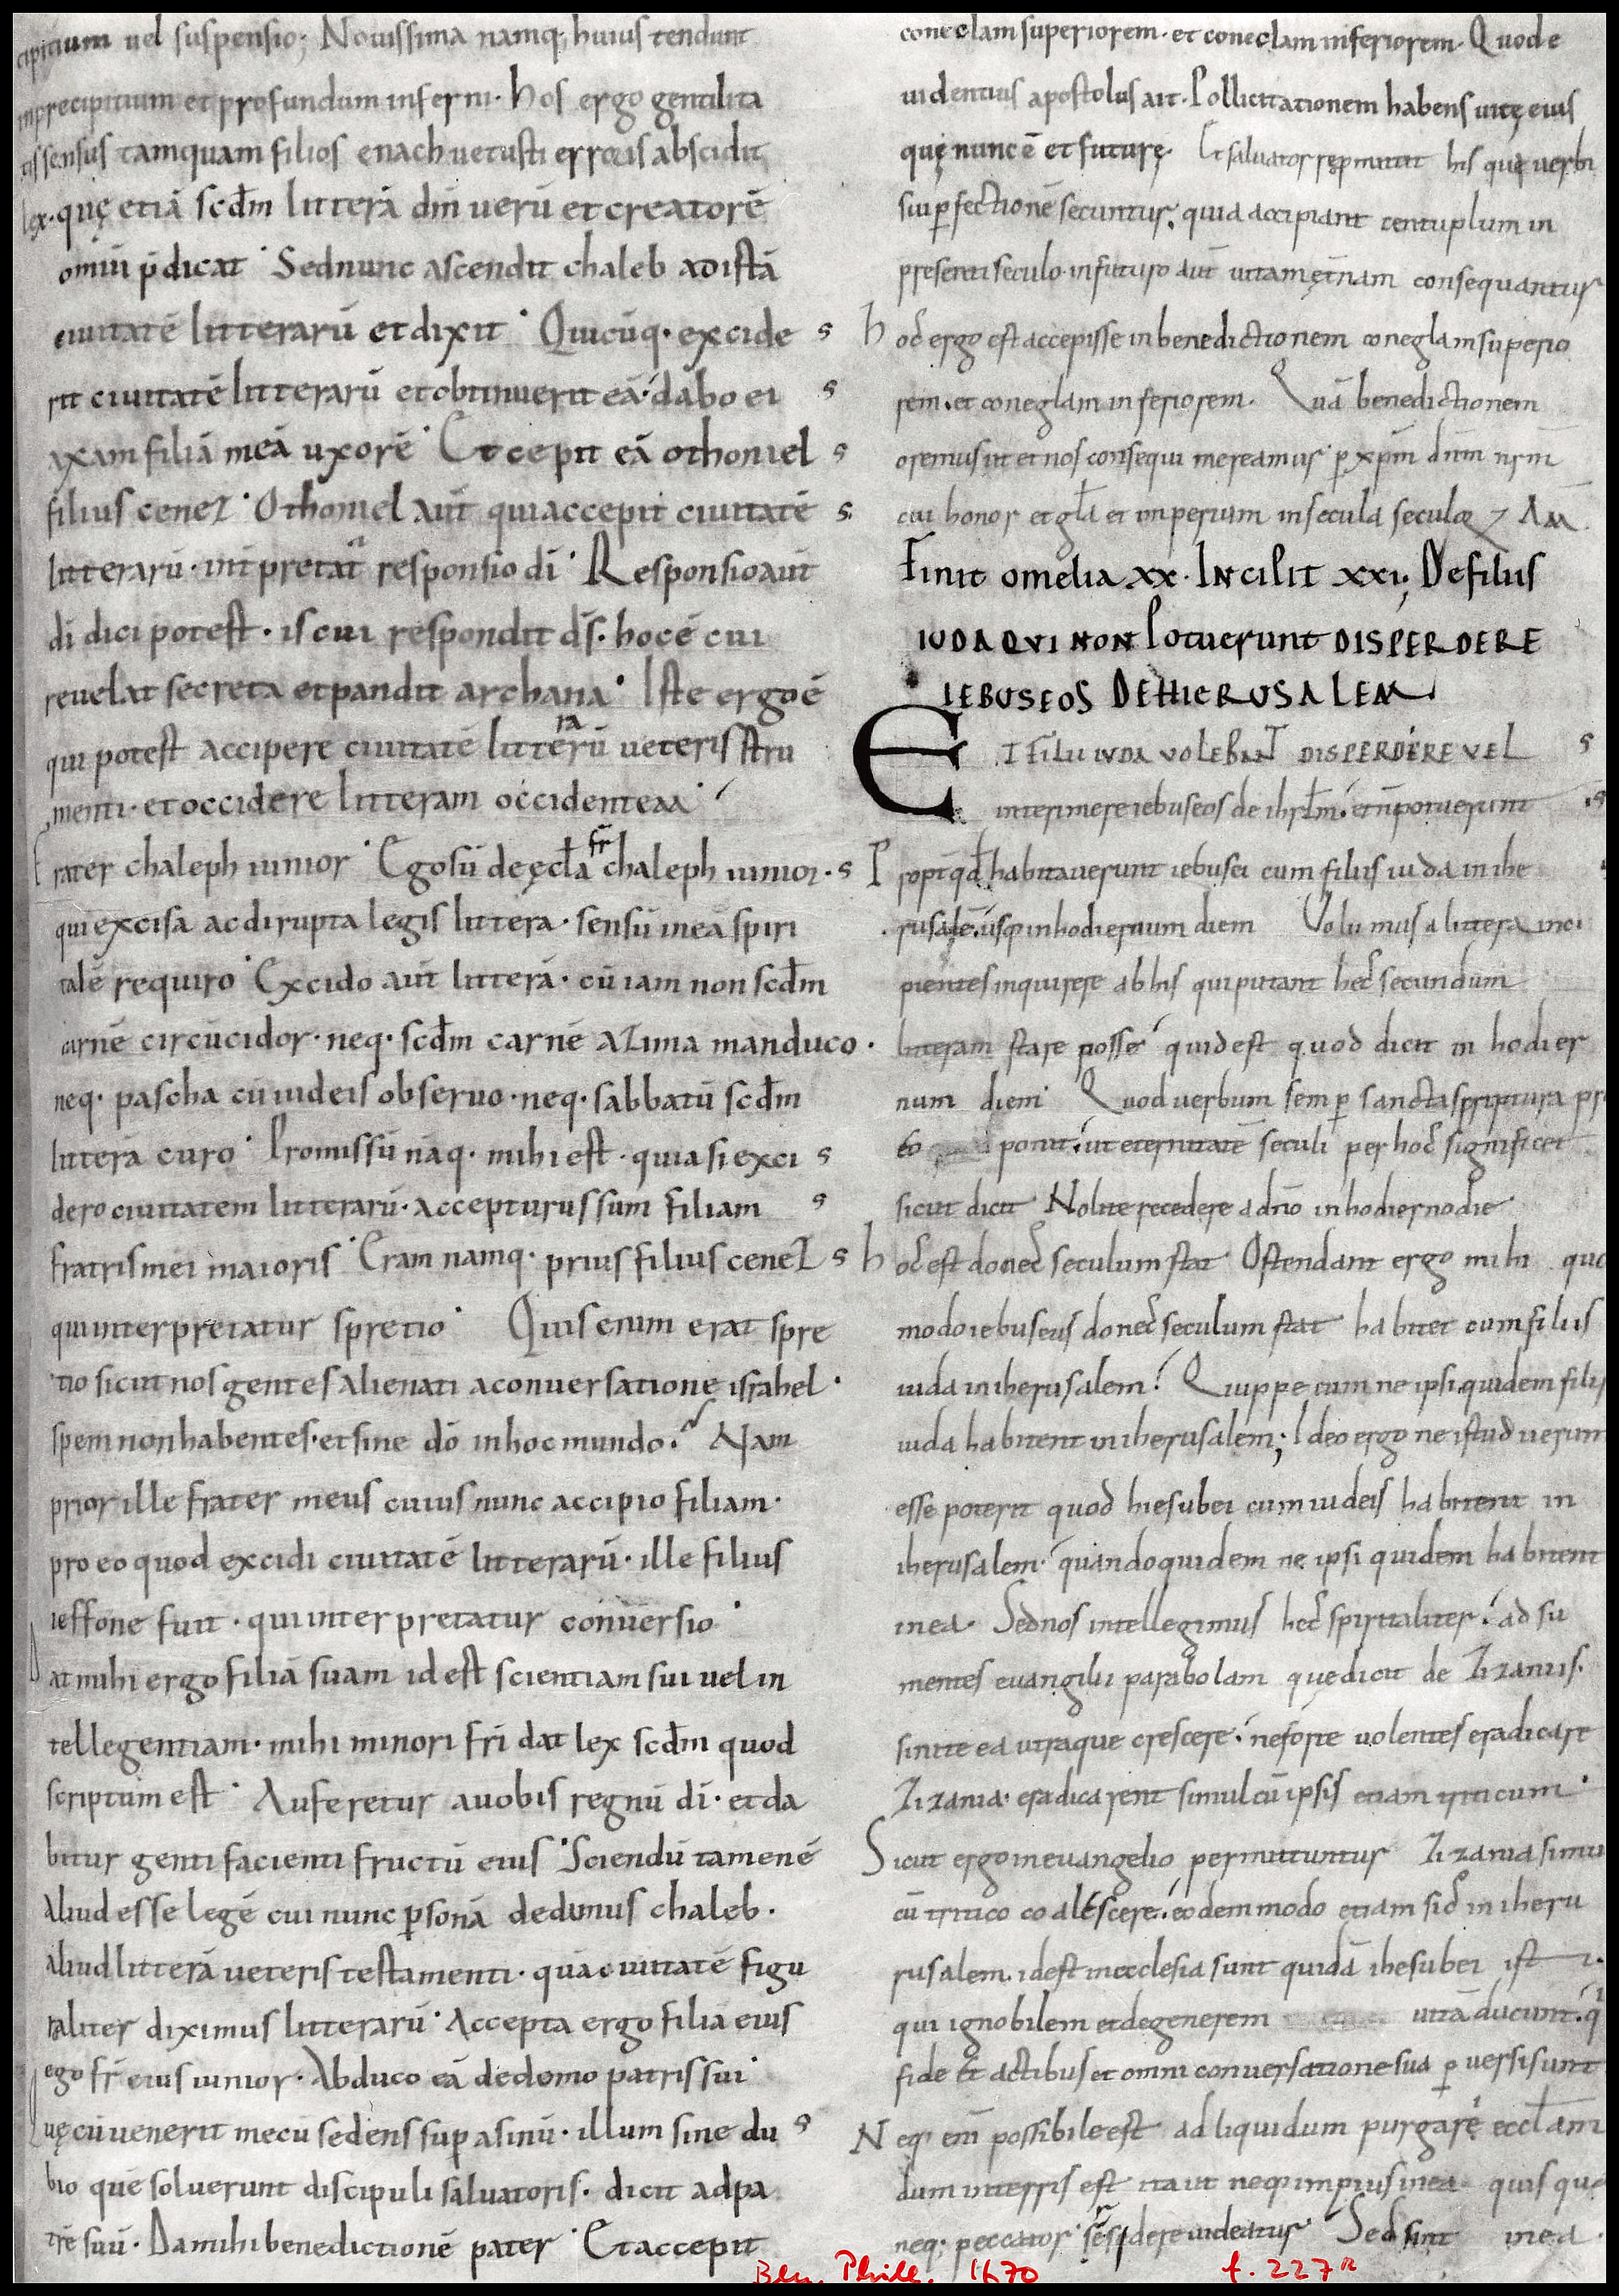 cipitium uel suspensio; Nouissima namq; huius tendunt
inprecipitium et profundum inferni. hos ergo gentilita
tis sensus tamquam filios enach uetusti erroris abscidit
lex. quę etiā scd̄m litterā dn̄i uerū et creatorē
omiū p̄dicat. Sed nunc ascendit chaleb ad istā
ciuitatē litterarū et dixit. Quicūq. excide s
rit ciuitatē litterarū et obtinuerit eā. dabo ei s
axam filiā meā uxorē. Et cepit eā othoniel s
filius cenez. Othoniel aūt qui accepit ciuitatē s.
litterarū. int̄pretat̄ responsio dī. Responsio aūt
dī dici potest. is cui respondit ds̄. hoc ē cui
reuelat secreta et pandit archana. Iste ergo ē
qui potest accipere ciuitatē litterarū ueteris stru
menti. et occidere litteram occidentem.
frater chaleph iunior. Ego sū de ęcl̄a fr̄ chaleph iunior. s
qui excisa ac dirupta legis littera. sensū in ea spiri
talē requiro. Excido aūt litterā. cū iam non scd̄m
carnē circūcidor. neq. scd̄m carnē azima manduco.
neq. pascha cū iudeis obseruo. neq. sabbatū scd̄m
litterā curo. Promissū nāq. mihi est. quia si exci s
dero ciuitatem litterarū. accepturus sum filiam s
fratris mei maioris. Eram namq. prius filius cenez s
qui interpretatur spretio. Quis enim erat spre
tio sicut nos gentes alienati a conuersatione israhel.
spem non habentes. et sine dō in hoc mundo. Nam
prior ille frater meus cuius nunc accipio filiam.
pro eo quod excidi ciuitatē litterarū. ille filius
ieffone fuit. qui interpretatur conuersio.
Dat mihi ergo filiā suam id est scientiam sui uel in
tellegentiam. mihi minori frī dat lex scd̄m quod
scriptum est. Auferetur a uobis regnū dī. et da
bitur genti facienti fructū eius. Sciendū tamen ē
aliud esse legē cui nunc p̱sonā dedimus chaleb.
aliud litterā ueteris testamenti. quā ciuitatē figu
raliter diximus litterarū. Accepta ergo filia eius
ego fr̄ eius iunior. Abduco eā de domo patris sui.
Quę cū uenerit mecū sedens sup̱ asinū. illum sine du s
bio quē soluerunt discipuli saluatoris. dicit ad pa
trē suū. Da mihi benedictionē pater. Et accepit
coneclam superiorem. et coneclam inferiorem. Quod e
uidentius apostolus ait. Pollicitationem habens uitę eius
quę nunc ē et futurę. Et saluator repromittit his quę uerbi
sui p̱fectionē secuntur. quia accipiant centuplum in
presenti seculo. in futuro aūt uitam ęt̄nam consequantur
hoc̄ ergo est accepisse in benedictionem coneglam superio
rem. et coneglam inferiorem. Quā benedictionem
oremus ut et nos consequi mereamur p̱ xp̄m dn̄m nr̄m
cui honor et gl̄a et imperium in secula seculoꝝ Am̄.
Finit omelia xx. Incipit xxi; De filiis
iuda qui non potuerunt disperdere
iebuseos de hierusalem
ET filii iuda volebant disperdere vel s
interimere iebuseos de ihrl̄m. et n̄ potuerunt .s
Propt̄ qd̄ habitauerunt iebusei cum filiis iuda in ihe
rusalē. usq. in hodiernum diem Volumus a littera inci
pientes inquirere ab his qui putant hec̄ secundum
litteram stare posse quid est quod dicit in hodier
num diem Quod uerbum semp̱ sancta scriptura pr
eo ponit. ut eternitatē seculi per hoc̄ significet
sicut dicit Nolite recedere a dn̄o in hodierno die
hoc̄ est donec̄ seculum stat Ostendant ergo mihi quo
modo iebuseus donec̄ seculum stat habitet cum filiis
iuda in iherusalem? Quippe cum ne ipsi quidem filii
iuda habitent in iherusalem; Ideo ergo ne istud uerum
esse poterit quod hiesubei cum iudeis habitent in
iherusalem. quandoquidem ne ipsi quidem habitent
in ea. Sed nos intellegimus hec̄ spiritaliter. ad su
mentes euangilii parabolam que dicit de zizaniis.
sinite ea utraque crescere. ne forte uolentes eradicare
zizania. eradicarent simul cū ipsis etiam triticum.
Sicut ergo in euangelio permittuntur zizania simu
cū tritico coalescere. eodem modo etiam sic̄ in iheru
rusalem. id est in ecclesia sunt quidā ihesubei isti.
qui ignobilem et degenerem uitā ducunt. q
fide et actibus et omni conuersatione sua p̱uersi sunt
Neq. eni possibile est ad liquidum purgare eccl̄am
dum in terris est ita ut neq. impius in ea quisqua
neq. peccator residere uideatur Sed sint in ea.
Ber. Phill. 1670 f. 227R